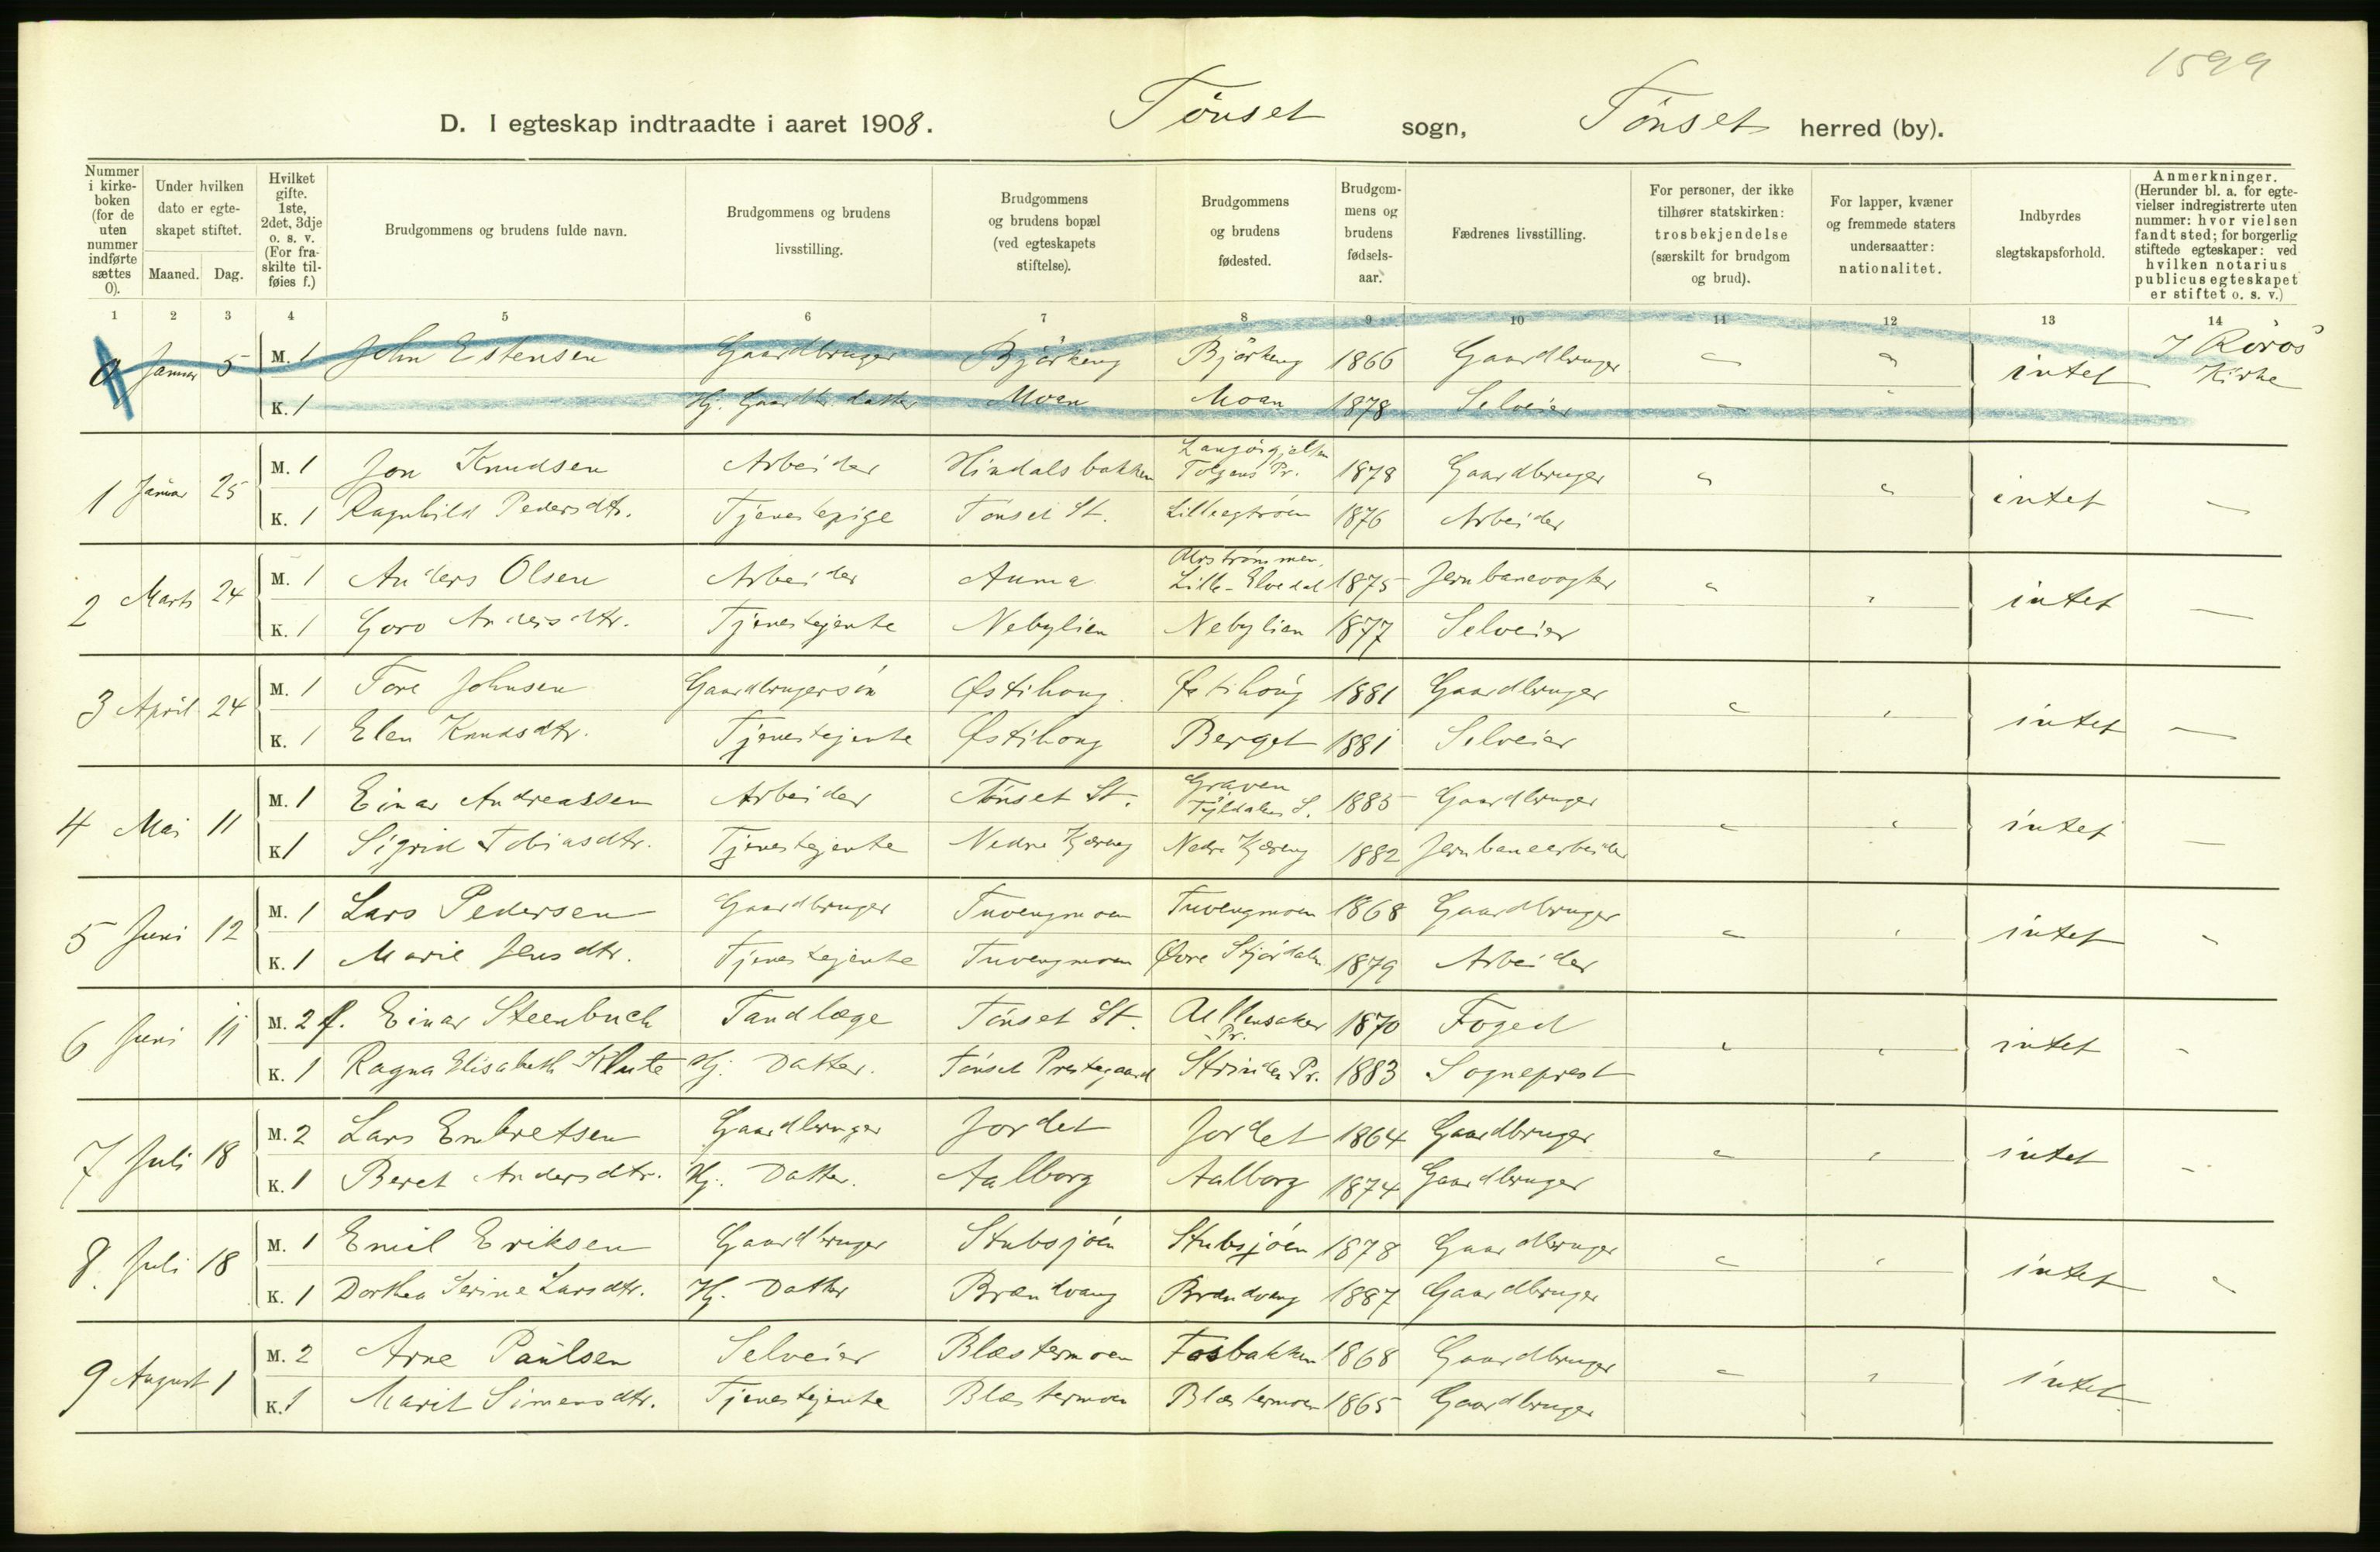 1599
D. I egteskap indtraadte i aaret 1908. Tönset sogn, Tönset herred (by).
Nummer i kirke- boken (for de uten nummer indførte sættes 0).
Under hvilken dato er egte- skapet stiftet.
Maaned. Dag.
Hvilket gifte. 1ste, 2det, 3dje o. s. v. (For fra- skilte til- føies f.)
Brudgommens og brudens fulde navn.
Brudgommens og brudens livsstilling.
Brudgommens og brudens bopæl (ved egteskapets stiftelse).
Brudgommens og brudens fødested.
Brudgom- mens og brudens fødsels- aar.
Fædrenes livsstilling.
For personer, der ikke tilhører statskirken: trosbekjendelse (særskilt for brudgom og brud).
For lapper, kvæner og fremmede staters undersaatter: nationalitet.
Indbyrdes slegtskapsforhold.
Anmerkninger. (Herunder bl. a. for egte- vielser indregistrerte uten nummer: hvor vielsen fandt sted; for borgerlig stiftede egteskaper: ved hvilken notarius publicus egteskapet er stiftet o. s. v.)
1 2 3 4 5 6 7 8 9 10 11 12 13 14
0 Januar 5 M. 1 John Estensen Gaardbruger Björkeng Björkeng 1866 Gaardbruger " " intet I Röros Kirke
K. 1 Hj. Gaardbr. datter Moan Moan 1878 Selveier " "
1 Januar 25 M. 1 Jon Knudsen Arbeider Hindalsbakken Tolgens Pr. 1878 Gaardbruger " " intet —
K. 1 Ragnhild Pedersdtr. Tjenestepige Tönset St. 1876 Arbeider
2 Marts 24 M. 1 Anders Olsen Arbeider Auma Lille-Elvedal 1875 Jernbanevogter " " intet —
K. 1 Goro Andersdtr. Tjenestejente Nebylien Nebylien 1877 Selveier
3 April 24 M. 1 Tore Johnsen Gaardbrugersön Østihoug Østihoug 1881 Gaardbruger " " intet —
K. 1 Elen Knudsdtr. Tjenestejente Østihoug Berget 1881 Selveier
4 Mai 11 M. 1 Einar Andreassen Arbeider Tönset St. Graven Tyldalen S. 1885 Gaardbruger " " intet —
K. 1 Sigrid Tobiasdtr. Tjenestejente Nedre Kjæreng Nedre Kjæreng 1882 Jernbanearbeider
5 Juni 12 M. 1 Lars Pedersen Gaardbruger Tuvengmoen Tuvengmoen 1868 Gaardbruger " " intet "
K. 1 Marie Jensdtr. Tjenestejente Tuvengmoen Øvre Stjördalen 1879 Arbeider
6 Juni 11 M. 2 f. Einar Steenbuch Tandlæge Tönset St. Ullensaker Pr. 1870 Foged " " intet "
K. 1 Ragna Elisabeth Klute Hj. Datter. Tönset Prestegaard Strinden Pr. 1883 Sogneprest
7 Juli 18 M. 2 Lars Embretsen Gaardbruger Jordet Jordet 1864 Gaardbruger " " intet "
K. 1 Beret Andersdtr. Hj. Datter. Aalborg Aalborg 1874 Gaardbruger
8. Juli 18 M. 1 Emil Eriksen Gaardbruger Stubsjöen Stubsjöen 1878 Gaardbruger " " intet "
K. 1 Dorthea Serine Larsdtr. Hj. Datter Brændvang Brændvang 1887 Gaardbruger
9 August 1 M. 2 Arne Paulsen Selveier Blæstermoen Fosbakken 1868 Gaardbruger " " intet
K. 1 Marit Simensdtr. Tjenestejente Blæstermoen Blæstermoen 1865 Gaardbruger